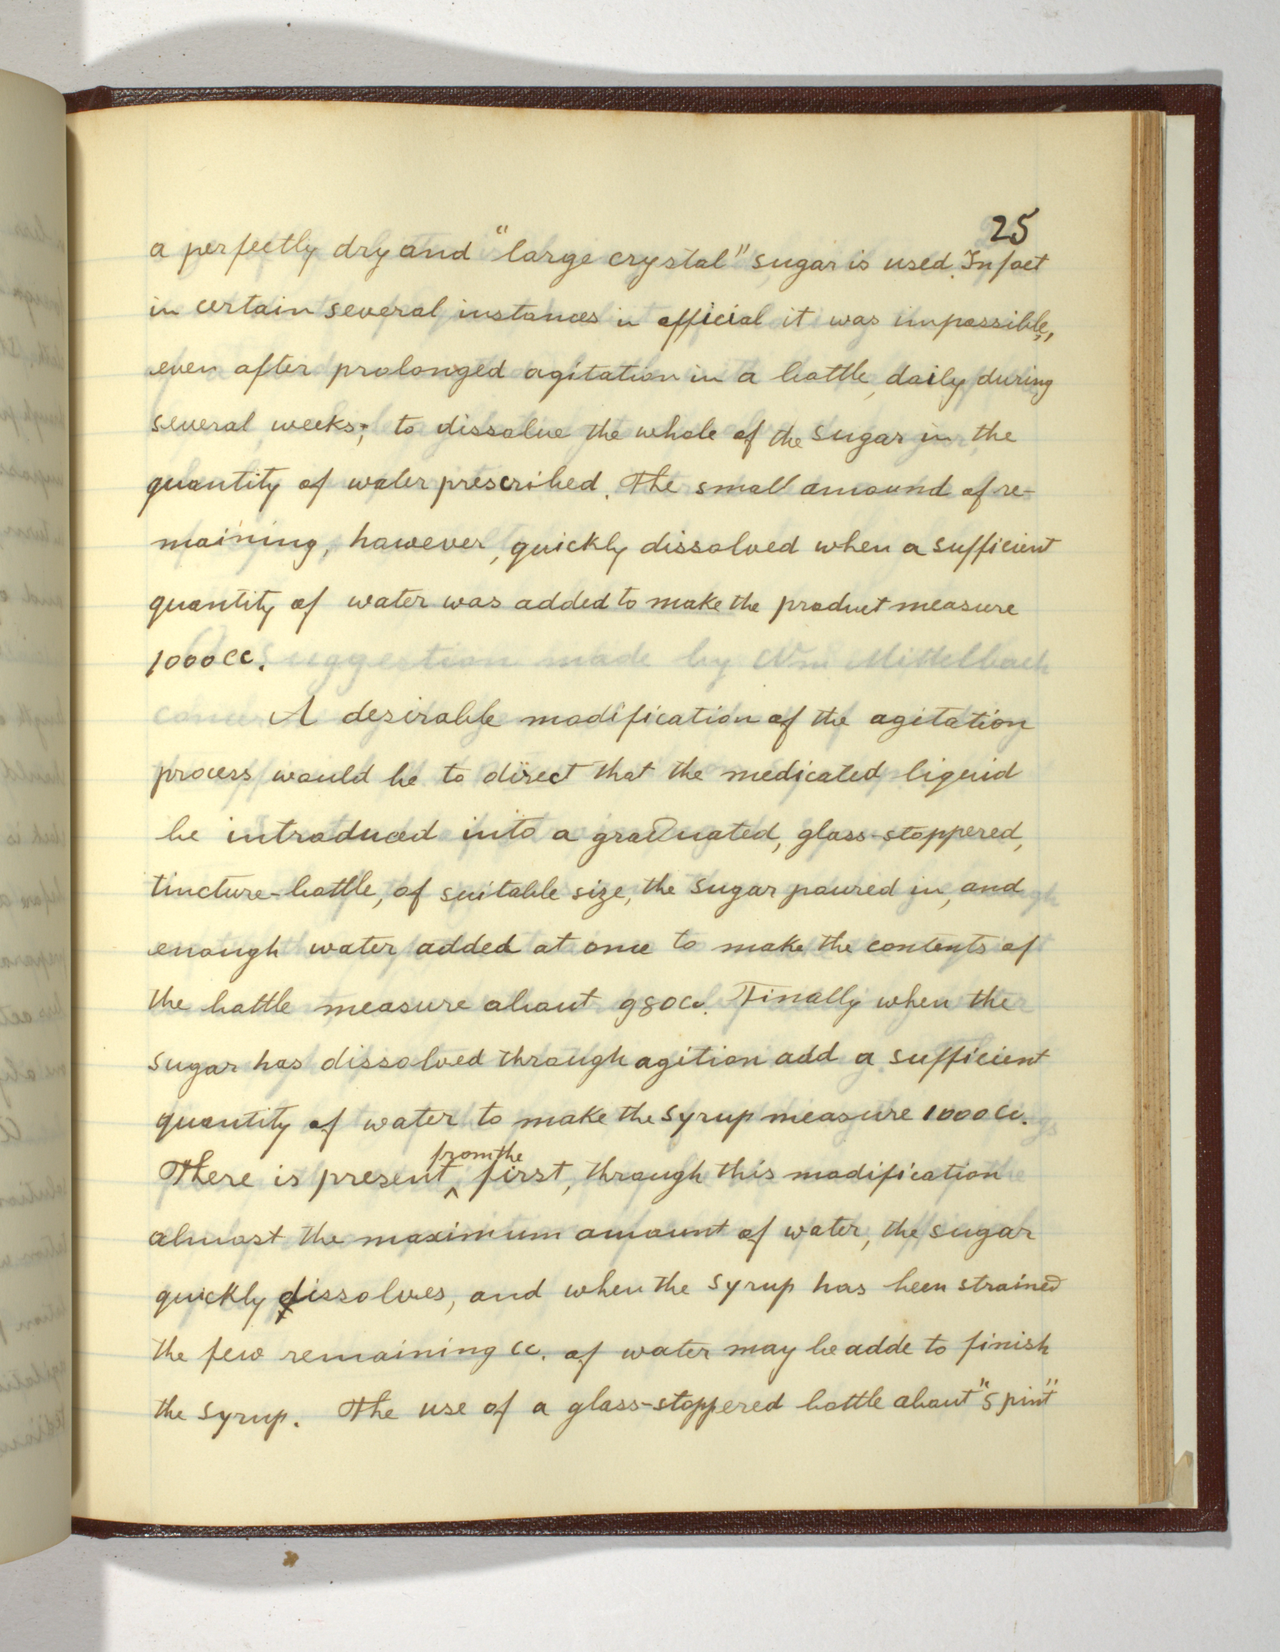 25
a perfectly dry and "large crystal" sugar is used. In fact
in certain several instances in official it was impossible,
even after prolonged agitation in a bottle, daily during
several weeks, to dissolve the whole of the sugar in the
quantity of water prescribed. The small amound of re-
maining, however, quickly dissolved when a sufficient
quantity of water was added to make the product measure
1000 cc.
A desirable modification of the agitation
process would be to direct that the medicated liquid
be introduced into a graduated, glass-stoppered,
tincture-bottle, of suitable size, the sugar poured in, and
enough water added at once to make the contents of
the bottle measure about 980 cc. Finally when the
sugar has dissolved through agition add a sufficient
quantity of water to make the syrup measure 1000 cc.
There is present from the first, through this modification
almost the maximum amount of water, the sugar
quickly dissolves, and when the syrup has been strained
the few remaining cc. of water may be adde to finish
the syrup. The use of a glass-stoppered bottle about "5 pint"